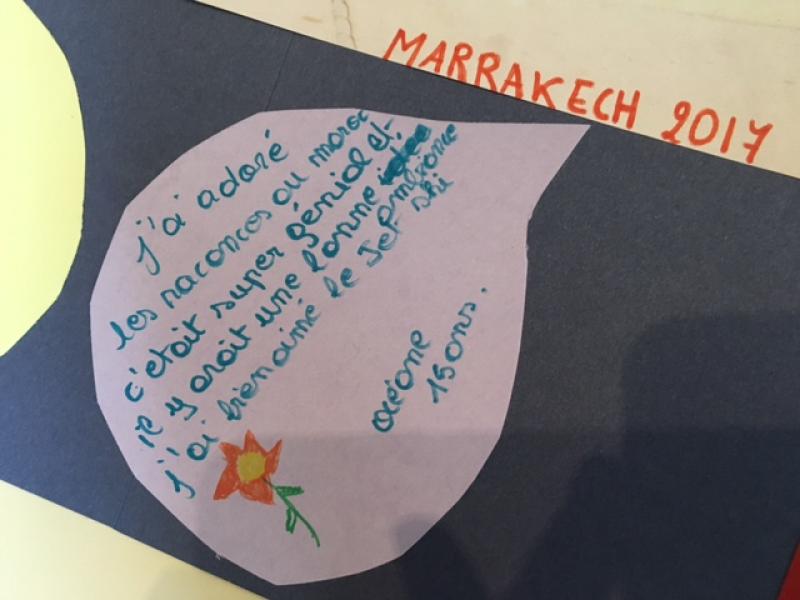 MARRAKECH 2017
J'ai adoré
les vaconces au maroc
c'était super génial et
il y avait une bonne ambionce
j'ai bien aimé le Jet ski
océane
15 ans.